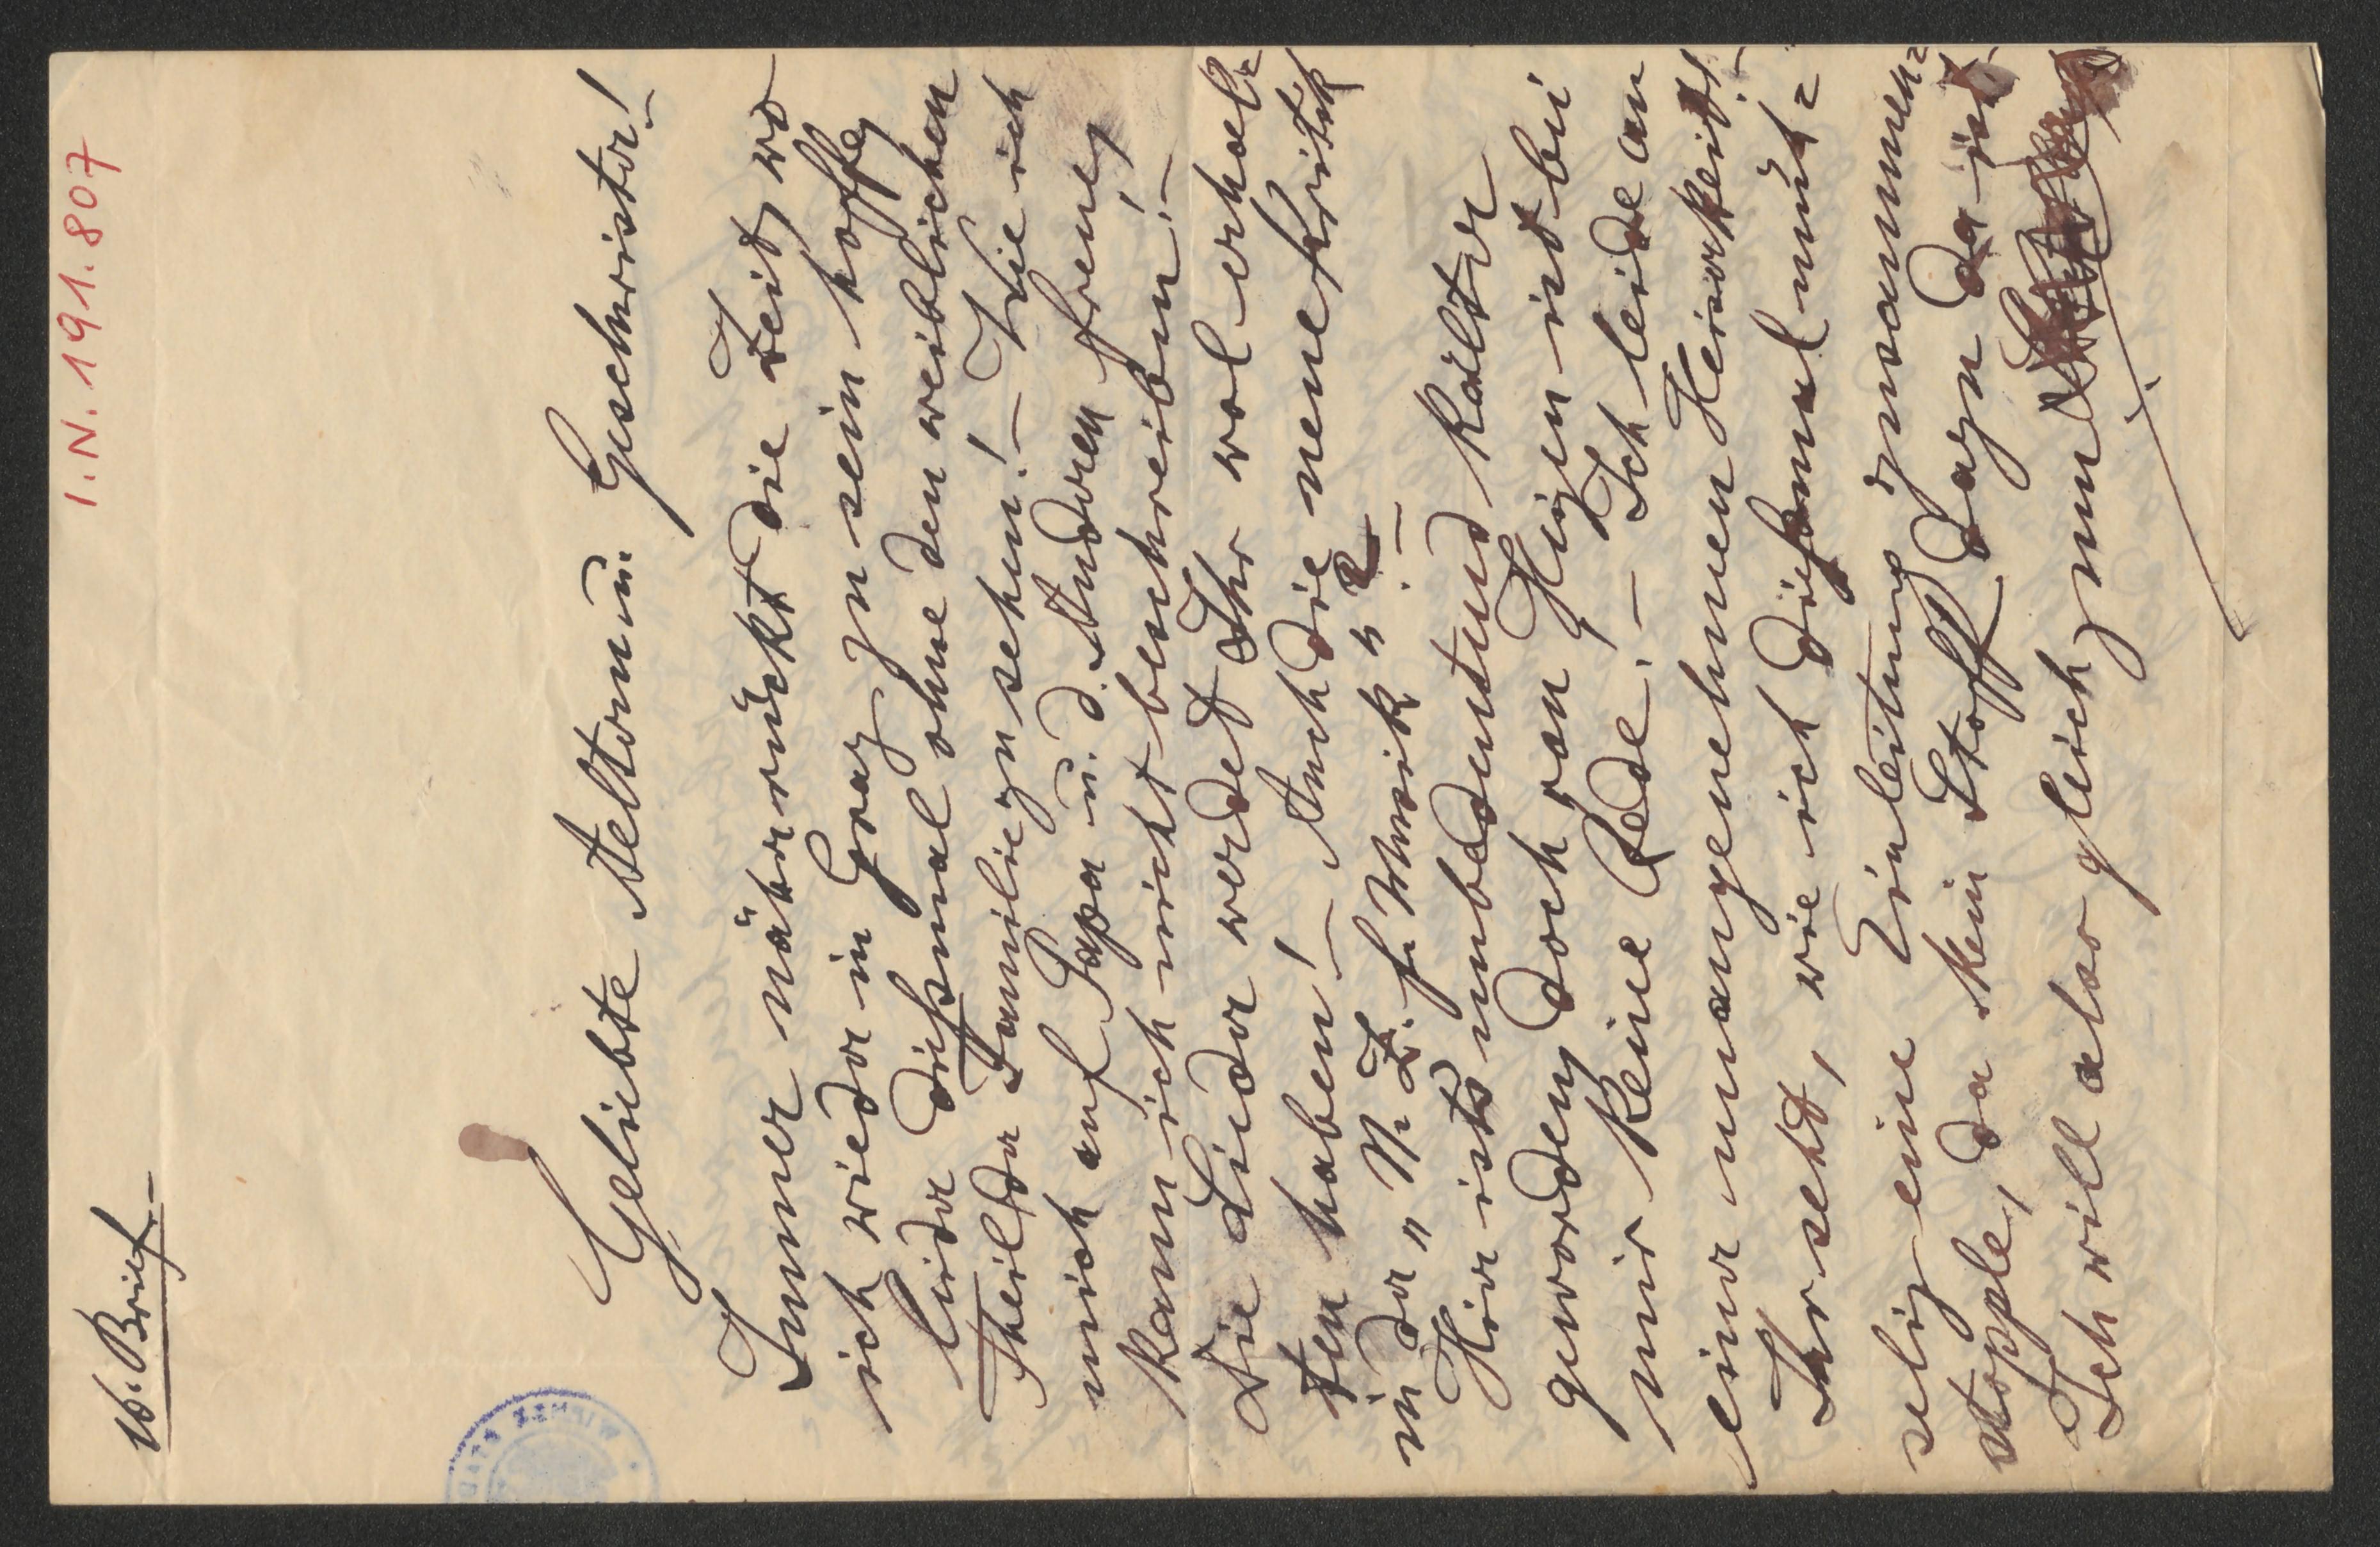 I.N. 191.807
16. Brief.–
Geliebte Aeltern u. Geschwister!
Immer näher rückt die Zeit, wo
ich wieder in Graz zu sein hoffe,
leider dißmal ohne den weiblichen
Theil der Familie zu sehen!– Wie ich
mich auf Papa u. d. Anderen freue,
kann ich nicht beschreiben!–
Die Lieder werdet Ihr wol erhal=
ten haben!– Auch die neue Kritik
in der „N. Z. f. Musik"?–
Hier ists unbedeutend kälter
geworden, doch von Heizen ist bei
mir keine Rede.– Ich leide an
einer unangenehmen Heiserkeit!–
Ihr seht, wie ich dißmal müh=
selig eine Einleitung zusammen=
stopple, da kein Stoff dazu da ist.
Ich will also gleich zum